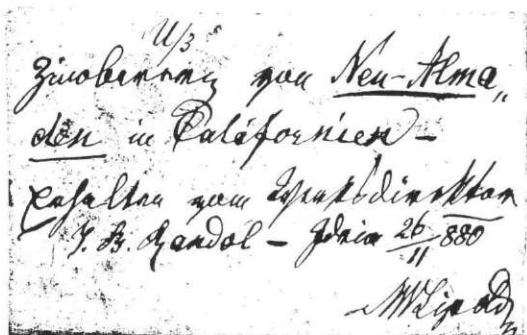 U/3
Zinobererz von Neu-Alma„
den in Californien –
Erhalten vom Werksdirektor
J. B. Randol – Idria 26/11 880
MVLipold